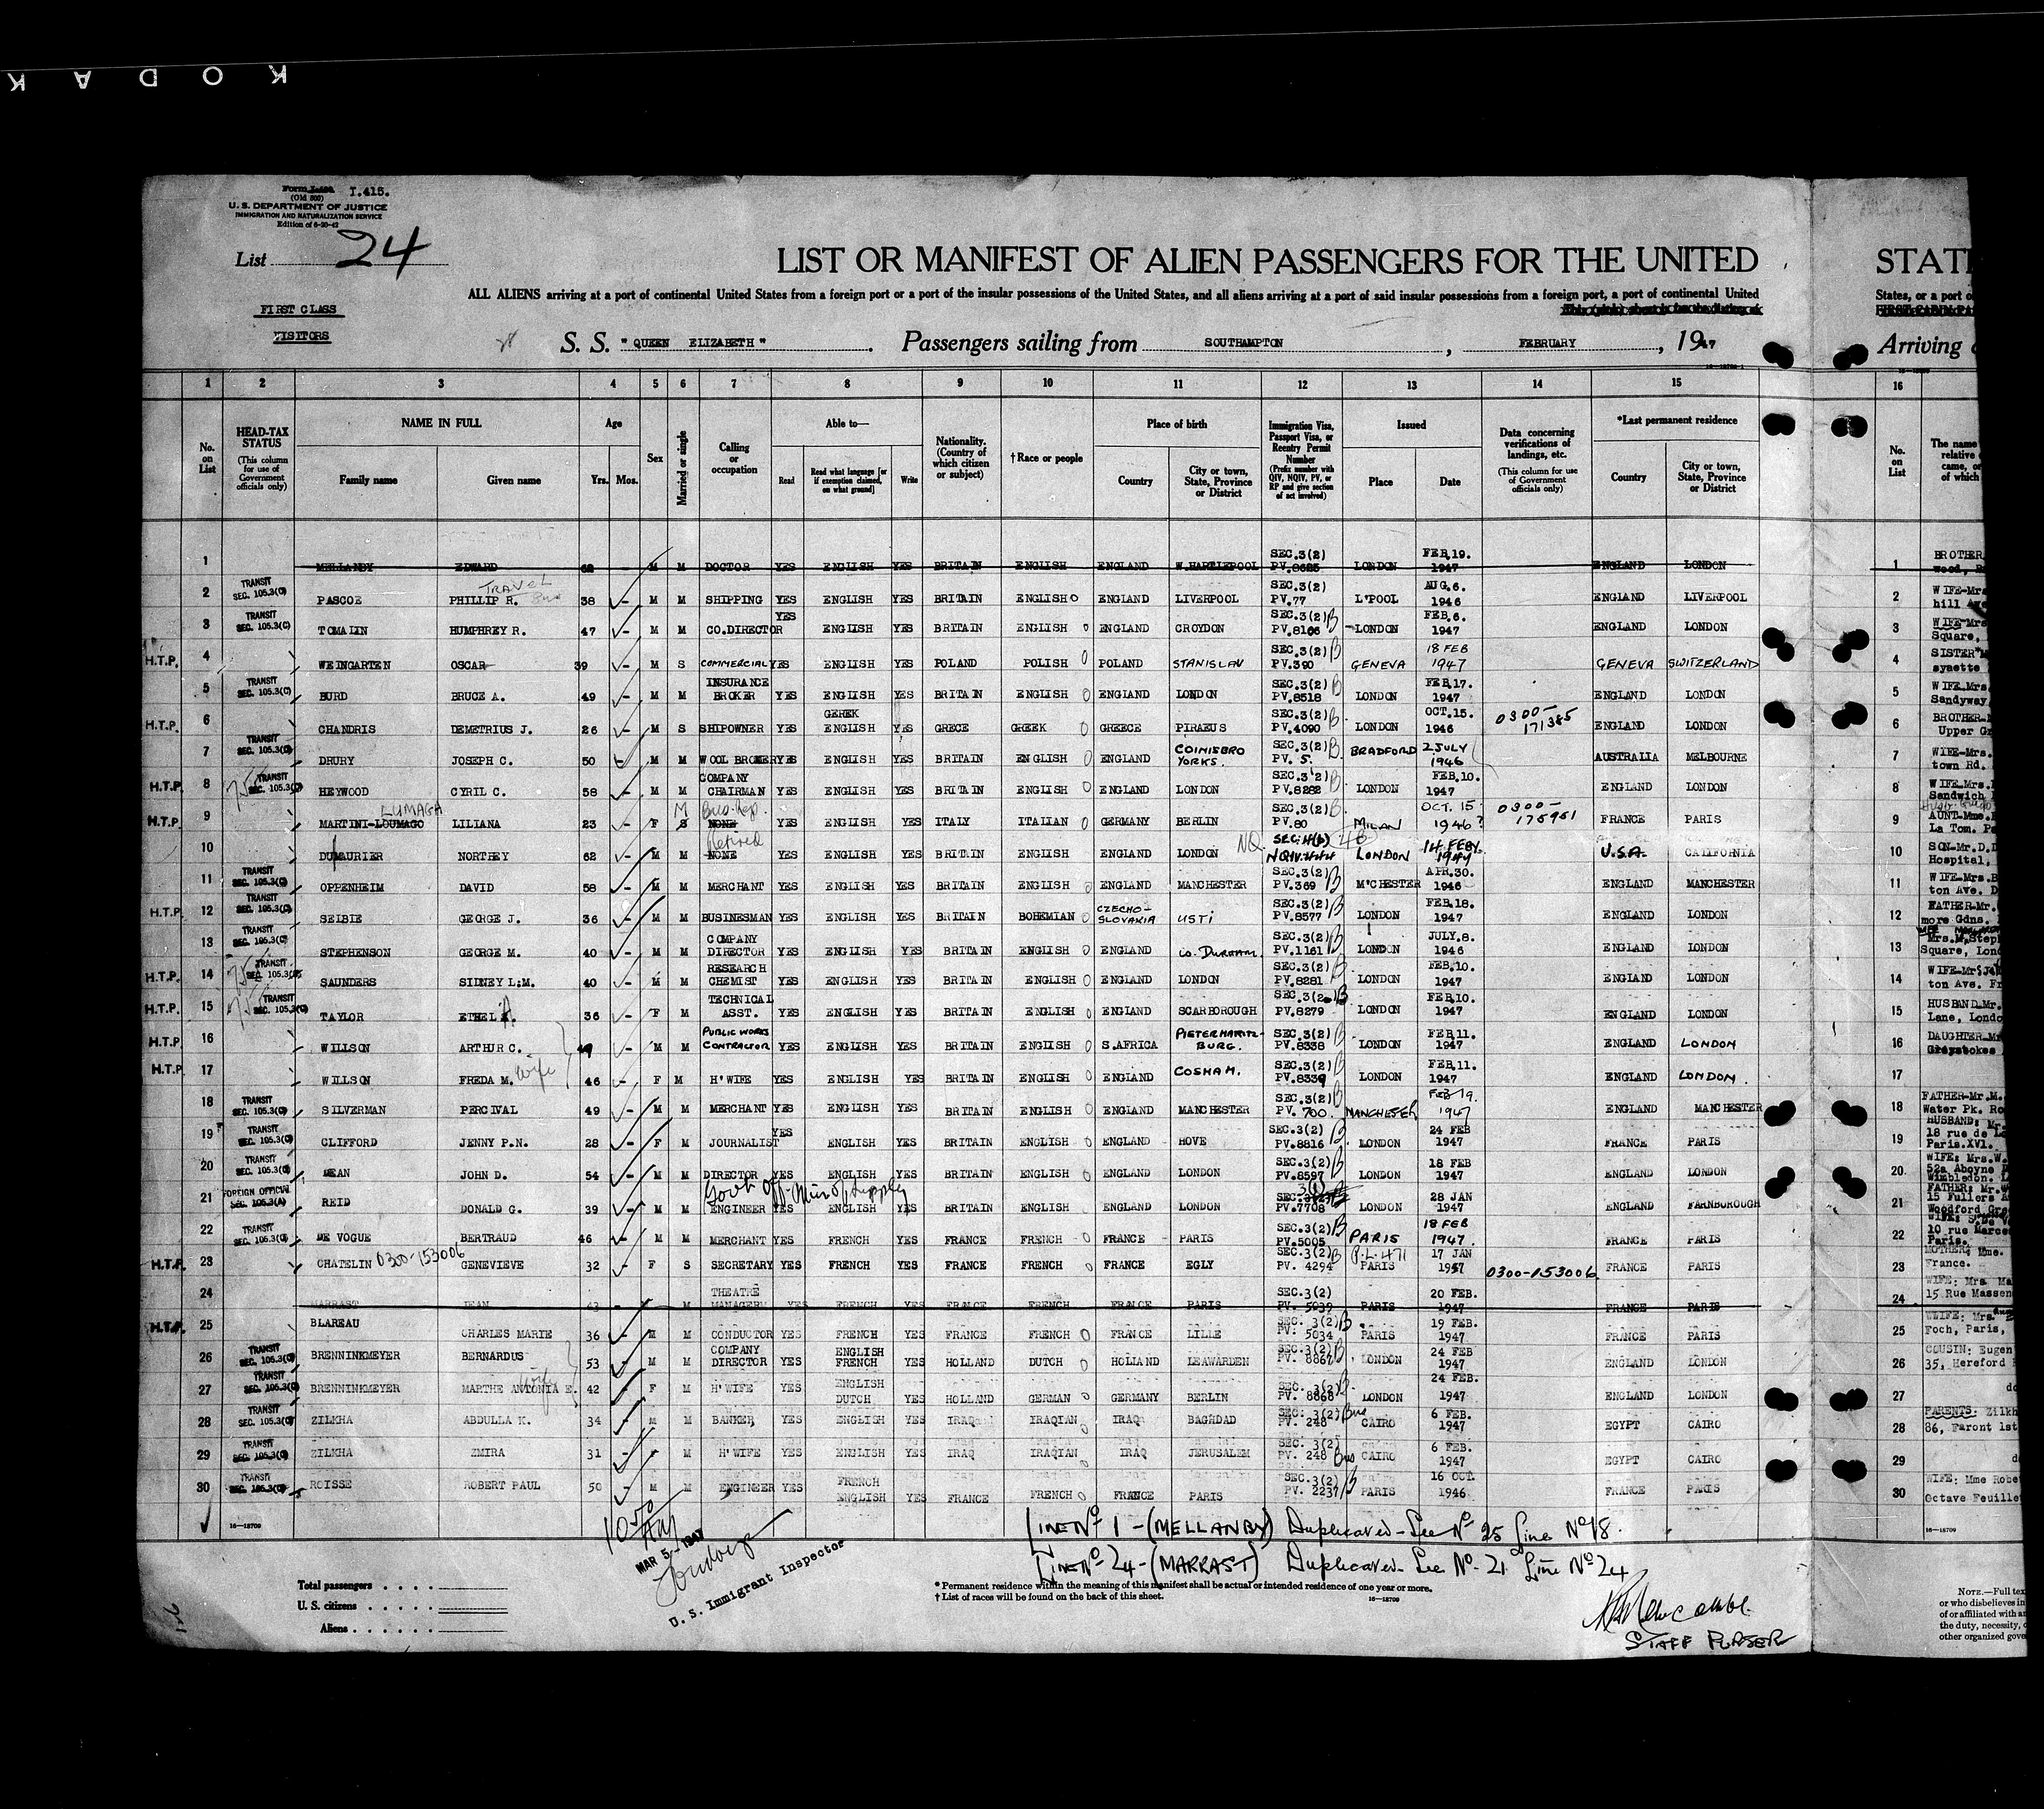 KODAK
Form I.415.
(Old 500)
U. S. DEPARTMENT OF JUSTICE
IMMIGRATION AND NATURALIZATION SERVICE
Edition of 6-20-42
List 24
LIST OR MANIFEST OF ALIEN PASSENGERS FOR THE UNITED
ALL ALIENS arriving at a port of continental United States from a foreign port or a port of the insular possessions of the United States, and all aliens arriving at a port of said insular possessions from a foreign port, a port of continental United
FIRST CLASS
VISITORS
S. S. "QUEEN ELIZABETH". Passengers sailing from SOUTHAMPTON, FEBRUARY, 1947
1 2 3 4 5 6 7 8 9 10 11 12 13 14 15
No. on List
HEAD-TAX STATUS (This column for use of Government officials only)
NAME IN FULL
Family name Given name
Age Yrs. Mos.
Sex
Married or single
Calling or occupation
Able to—
Read Read what language [or if exemption claimed, on what ground] Write
Nationality. (Country of which citizen or subject)
†Race or people
Place of birth
Country City or town, State, Province or District
Immigration Visa, Passport Visa, or Reentry Permit Number (Prefix number with QIV, NQIV, PV, or RP and give section of act involved)
Issued
Place Date
Data concerning verifications of landings, etc. (This column for use of Government officials only)
*Last permanent residence
Country City or town, State, Province or District
1 MELLANBY EDWARD 62 M M DOCTOR YES ENGLISH YES BRITAIN ENGLISH ENGLAND W.HARTLEPOOL SEC.3(2) PV.8625 LONDON FEB.19. 1947 ENGLAND LONDON
2 TRANSIT SEC. 105.3(C) PASCOE PHILLIP R. TRAVEL Bus 38 M M SHIPPING YES ENGLISH YES BRITAIN ENGLISH ENGLAND LIVERPOOL SEC.3(2) PV.77 L'POOL AUG.6. 1946 ENGLAND LIVERPOOL
3 TRANSIT SEC. 105.3(C) TOMALIN HUMPHREY R. 47 M M CO.DIRECTOR YES ENGLISH YES BRITAIN ENGLISH ENGLAND CROYDON SEC.3(2)B PV.8106 LONDON FEB.6. 1947 ENGLAND LONDON
H.T.P. 4 WEINGARTEN OSCAR 39 M S COMMERCIAL YES ENGLISH YES POLAND POLISH POLAND STANISLAV SEC.3(2)B PV.390 GENEVA 18 FEB 1947 GENEVA SWITZERLAND
5 TRANSIT SEC. 105.3(C) BURD BRUCE A. 49 M M INSURANCE BROKER YES ENGLISH YES BRITAIN ENGLISH ENGLAND LONDON SEC.3(2)B PV.8518 LONDON FEB.17. 1947 ENGLAND LONDON
H.T.P. 6 CHANDRIS DEMETRIUS J. 26 M S SHIPOWNER YES GEREK ENGLISH YES GRECE GREEK GREECE PIRAEUS SEC.3(2)B PV.4090 LONDON OCT.15. 1946 0300-171385 ENGLAND LONDON
7 TRANSIT SEC. 105.3(C) DRURY JOSEPH C. 50 M M WOOL BROKER YES ENGLISH YES BRITAIN ENGLISH ENGLAND COINISBRO YORKS. SEC.3(2)B PV. 5. BRADFORD 2 JULY 1946 AUSTRALIA MELBOURNE
H.T.P. 8 TRANSIT SEC. 105.3(C) HEYWOOD CYRIL C. 58 M M COMPANY CHAIRMAN YES ENGLISH YES BRITAIN ENGLISH ENGLAND LONDON SEC.3(2)B PV.8282 LONDON FEB.10. 1947 ENGLAND LONDON
H.T.P. 9 MARTINI-LOUMAGO LUMAGA LILIANA 23 F S M NONE Bus. Rep. YES ENGLISH YES ITALY ITALIAN GERMANY BERLIN SEC.3(2)B PV.80 MILAN OCT. 15 1946? 0300-175951 FRANCE PARIS
10 DUMAURIER NORTHEY 62 M M NONE Retired YES ENGLISH YES BRITAIN ENGLISH ENGLAND LONDON NQ NQIV.444 LONDON 14 FEBY. 1947 U.S.A. CALIFORNIA
11 TRANSIT SEC. 105.3(C) OPPENHEIM DAVID 58 M M MERCHANT YES ENGLISH YES BRITAIN ENGLISH ENGLAND MANCHESTER SEC.3(2)B PV.369 M'CHESTER APR.30. 1946 ENGLAND MANCHESTER
H.T.P. 12 TRANSIT SEC. 105.3(C) SELBIE GEORGE J. 36 M M BUSINESMAN YES ENGLISH YES BRITAIN BOHEMIAN CZECHO-SLOVAKIA USTI SEC.3(2)B PV.8577 LONDON FEB.18. 1947 ENGLAND LONDON
13 TRANSIT SEC. 105.3(C) STEPHENSON GEORGE M. 40 M M COMPANY DIRECTOR YES ENGLISH YES BRITAIN ENGLISH ENGLAND CO. DURHAM. SEC.3(2)B PV.1161 LONDON JULY.8. 1946 ENGLAND LONDON
H.T.P. 14 TRANSIT SEC. 105.3(C) SAUNDERS SIDNEY L.M. 40 M M RESEARCH CHEMIST YES ENGLISH YES BRITAIN ENGLISH ENGLAND LONDON SEC.3(2)B PV.8281 LONDON FEB.10. 1947 ENGLAND LONDON
H.T.P. 15 TRANSIT SEC. 105.3(C) TAYLOR ETHEL A. 36 F M TECHNICAL ASST. YES ENGLISH YES BRITAIN ENGLISH ENGLAND SCARBOROUGH SEC.3(2)B PV.8279 LONDON FEB.10. 1947 ENGLAND LONDON
H.T.P. 16 WILLSON ARTHUR C. 49 M M PUBLIC WORKS CONTRACTOR YES ENGLISH YES BRITAIN ENGLISH S.AFRICA PIETERMARITZ-BURG. SEC.3(2)B PV.8338 LONDON FEB.11. 1947 ENGLAND LONDON
H.T.P. 17 WILLSON FREDA M. wife 46 F M H'WIFE YES ENGLISH YES BRITAIN ENGLISH ENGLAND COSHAM. SEC.3(2)B PV.8339 LONDON FEB.11. 1947 ENGLAND LONDON.
18 TRANSIT SEC. 105.3(C) SILVERMAN PERCIVAL 49 M M MERCHANT YES ENGLISH YES BRITAIN ENGLISH ENGLAND MANCHESTER SEC.3(2)B PV. 700. MANCHESTER FEB 19. 1947 ENGLAND MANCHESTER
19 TRANSIT SEC. 105.3(C) CLIFFORD JENNY P.N. 28 F M JOURNALIST YES ENGLISH YES BRITAIN ENGLISH ENGLAND HOVE SEC.3(2)B PV.8816 LONDON 24 FEB 1947 FRANCE PARIS
20 TRANSIT SEC. 105.3(C) DEAN JOHN D. 54 M M DIRECTOR YES ENGLISH YES BRITAIN ENGLISH ENGLAND LONDON SEC.3(2)B PV.8597 LONDON 18 FEB 1947 ENGLAND LONDON
21 FOREIGN OFFICIAL SEC. 105.3(A) REID DONALD G. 39 M M Govt Off. Min of Supply ENGINEER YES ENGLISH YES BRITAIN ENGLISH ENGLAND LONDON SEC. 3(1) PV.7708 LONDON 28 JAN 1947 ENGLAND FARNBOROUGH
22 TRANSIT SEC. 105.3(C) DE VOGUE BERTRAUD 46 M M MERCHANT YES FRENCH YES FRANCE FRENCH FRANCE PARIS SEC.3(2)B PV.5005 PARIS 18 FEB 1947. FRANCE PARIS
H.T.P. 23 CHATELIN 0300-153006 GENEVIEVE 32 F S SECRETARY YES FRENCH YES FRANCE FRENCH FRANCE EGLY SEC.3(2)B PV. 4294 P.L. 471 PARIS 17 JAN 1957 0300-153006 FRANCE PARIS
24 MARRAST JEAN 43 M THEATRE MANAGER YES FRENCH YES FRANCE FRENCH FRANCE PARIS SEC.3(2) PV. 5039 PARIS 20 FEB. 1947 FRANCE PARIS
H.T.P. 25 BLAREAU CHARLES MARIE 36 M M CONDUCTOR YES FRENCH YES FRANCE FRENCH FRANCE LILLE SEC. 3(2)B PV. 5034 PARIS 19 FEB. 1947 FRANCE PARIS
26 TRANSIT SEC. 105.3(C) BRENNINKMEYER BERNARDUS 53 M M COMPANY DIRECTOR YES ENGLISH FRENCH YES HOLLAND DUTCH HOLLAND LEAWARDEN SEC.3(2)B PV. 8867 LONDON 24 FEB 1947 ENGLAND LONDON
27 TRANSIT SEC. 105.3(C) BRENNINKMEYER MARTHE ANTONIA E. wife 42 F M H'WIFE YES ENGLISH DUTCH YES HOLLAND GERMAN GERMANY BERLIN SEC. 3(2)B PV. 8868 LONDON 24 FEB. 1947 ENGLAND LONDON
28 TRANSIT SEC. 105.3(C) ZILKHA ABDULLA K. 34 M M BANKER YES ENGLISH YES IRAQ IRAQIAN IRAQ BAGHDAD SEC. 3(2) Bus PV. 248 CAIRO 6 FEB. 1947 EGYPT CAIRO
29 TRANSIT SEC. 105.3(C) ZILKHA ZMIRA 31 F M H'WIFE YES ENGLISH YES IRAQ IRAQIAN IRAQ JERUSALEM SEC. 3(2) PV. 248 Bus CAIRO 6 FEB. 1947 EGYPT CAIRO
30 TRANSIT SEC. 105.3(C) ROISSE ROBERT PAUL 50 M M ENGINEER YES FRENCH ENGLISH YES FRANCE FRENCH FRANCE PARIS SEC.3(2)B PV. 2237 PARIS 16 OCT. 1946 FRANCE PARIS
16-18709
LINE No 1 - (MELLANBY) Duplicated - See No 25 Line No 18.
LINE No 24 - (MARRAST) Duplicated - See No. 21 Line No 24
MAR 5 - 1947
U. S. Immigrant Inspector
Total passengers
U. S. citizens
Aliens
* Permanent residence within the meaning of this manifest shall be actual or intended residence of one year or more.
† List of races will be found on the back of this sheet.
16-18709
Newcombe.
STAFF PURSER
STATE
States, or a port o
Arriving
16
No. on List
The name
relative
came, or
of which
1 BROTHER
2 WIFE-Mrs
hill Ave
3 WIFE-Mrs
Square,
4 SISTER M
ayette
5 WIFE.Mrs.
Sandyway
6 BROTHER-
Upper Gr
7 WIFE-Mrs.
town Rd.
8 WIFE.Mrs.
Sandwich
9 AUNT-Mme.
La Tom. Pa
10 SON-Mr.D.D
Hospital,
11 WIFE-Mrs.B
ton Ave. D
12 FATHER-Mr.
more Gdns.
13 Mrs.M.Steph
Square, Lond
14 WIFE-Mrs.
ton Ave. Fr
15 HUSBAND-Mr.
Lane, Londo
16 DAUGHTER-Mr
Greystokes
17
18 FATHER-Mr.M.
Water Pk. Ro
19 HUSBAND: Mr.
18 rue de
Paris.XVI.
20. WIFE: Mrs.W.
52a Aboyne
Wimbledon.
21 FATHER: Mr.W
15 Fullers A
Woodford Gre
22 WIFE:
10 rue Marce
Paris.
23 MOTHER: Mme.
France.
24 WIFE: Mrs. Ma
15 Rue Massen
25 WIFE: Mrs.
Foch, Paris,
26 COUSIN: Eugen
35, Hereford
27 do
28 PARENTS: Zilkh
86, Faront 1st
29 d
30 WIFE: Mme Robe
Octave Feuille
16-18709
NOTE.—Full tex
or who disbelieves in
of or affiliated with a
the duty, necessity, o
other organized gove